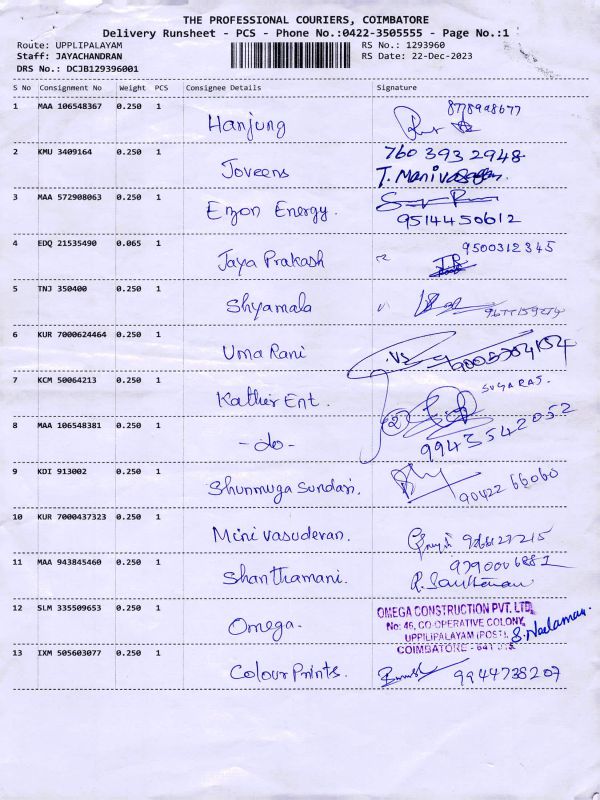 THE PROFESSIONAL COURIERS, COIMBATORE
Delivery Runsheet - PCS - Phone No.:0422-3505555 - Page No.:1
Route: UPPLIPALAYAM RS No.: 1293960
Staff: JAYACHANDRAN RS Date: 22-Dec-2023
DRS No.: DCJB129396001
S No Consignment No Weight PCS Consignee Details Signature
1 MAA 106548367 0.250 1 Hanjung
2 KMU 3409164 0.250 1 Joveens 760 393 2948
T. Manivasagan.
3 MAA 572908063 0.250 1 Enzon Energy.
9514450612
4 EDQ 21535490 0.065 1 Jaya Prakash 9500312345
5 TNJ 350400 0.250 1 Shyamala
6 KUR 7000624464 0.250 1 Uma Rani
7 KCM 50064213 0.250 1 Kather Ent. SUGARAJ.
8 MAA 106548381 0.250 1 - do - 9943542052
9 KDI 913002 0.250 1 Shunmuga Sundari. 90422 66060
10 KUR 7000437323 0.250 1 Mini vasudevan.
11 MAA 943845460 0.250 1 Shanthamani.
12 SLM 335509653 0.250 1 Omega. OMEGA CONSTRUCTION PVT. LTD,
No: 46, CO-OPERATIVE COLONY,
UPPILIPALAYAM (POST),
COIMBATORE - 641
13 IXM 505603077 0.250 1 Colour Prints. 9944738207